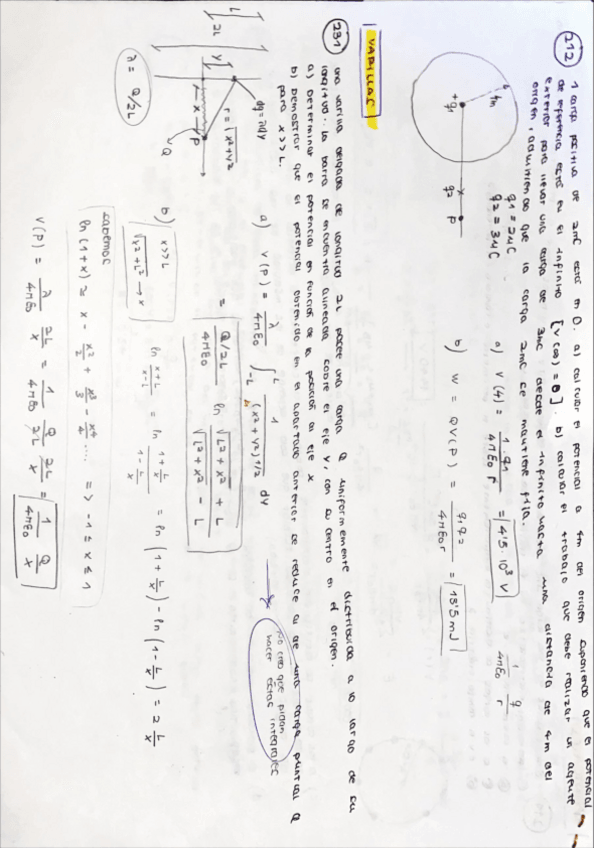 212
1 carga positiva de 2mC está en 0. a) calcular el potencial a 4m del origen suponiendo que el potencial
de referencia está en el infinito [V(∞) = 0]. b) calcular el trabajo que debe realizar un agente
exterior para llevar una carga de 3mC desde el infinito hasta una distancia de 4m del
origen, admitiendo que la carga 2mC se mantiene fija.
q1 = 2μC
q2 = 3μC
4m
+q1
q2
P
a) V(4) = 1/4πε0 q1/r = 4'5·10³ V
b) W = QV(P) = q1q2/4πε0r = 13'5 mJ
VARILLAS
231
una varilla delgada de longitud 2L posee una carga Q uniformemente distribuida a lo largo de su
longitud. La barra se encuentra alineada sobre el eje Y, con su centro en el origen.
a) Determinar el potencial en función de la posición al eje x
b) Demostrar que el potencial obtenido en el apartado anterior se reduce a de una carga puntual Q
para x >> L.
L
2L
Y
dq = λdy
r = √x²+y²
x
P
Q
λ = Q/2L
a) V(P) = λ/4πε0 ∫-L L 1/(x²+y²)^1/2 dy
= Q/2L/4πε0 ln √L²+x² + L/√L²+x² - L
no creo que pidan
hacer estas integrales
b) x>>L
√x²+L² → x
ln x+L/x-L = ln 1+L/x/1-L/x = ln (1+L/x) - ln (1-L/x) = 2 L/x
sabemos
ln (1+x) = x - x²/2 + x³/3 - x⁴/4 .... => -1 ≤ x ≤ 1
V(P) = λ/4πε0 2L/x = 1/4πε0 Q/2L 2L/x = 1/4πε0 Q/x